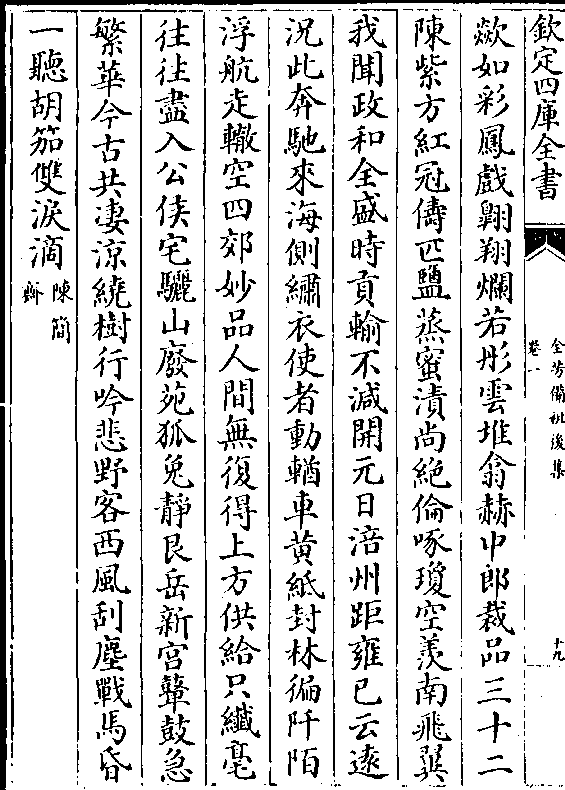 欽定四庫全書
全芳備祖後集
卷一
十九
歘如彩鳳戲翺翔爛若彤雲堆翕赫中郎裁品三十二
陳紫方紅冠儔匹鹽蒸蜜漬尚絶倫啄瓊空羨南飛翼
我聞政和全盛時貢輸不減開元日涪州距雍已云逺
況此奔馳來海側繡衣使者動輶車黄紙封林徧阡陌
浮航走轍空四郊妙品人間無復得上方供給只纎毫
往往盡入公侯宅驪山廢苑狐兎靜艮岳新宮鼙鼓急
繁華今古共凄涼繞樹行吟悲野客西風刮塵戰馬昏
一聽胡笳雙淚滴
陳簡
齋